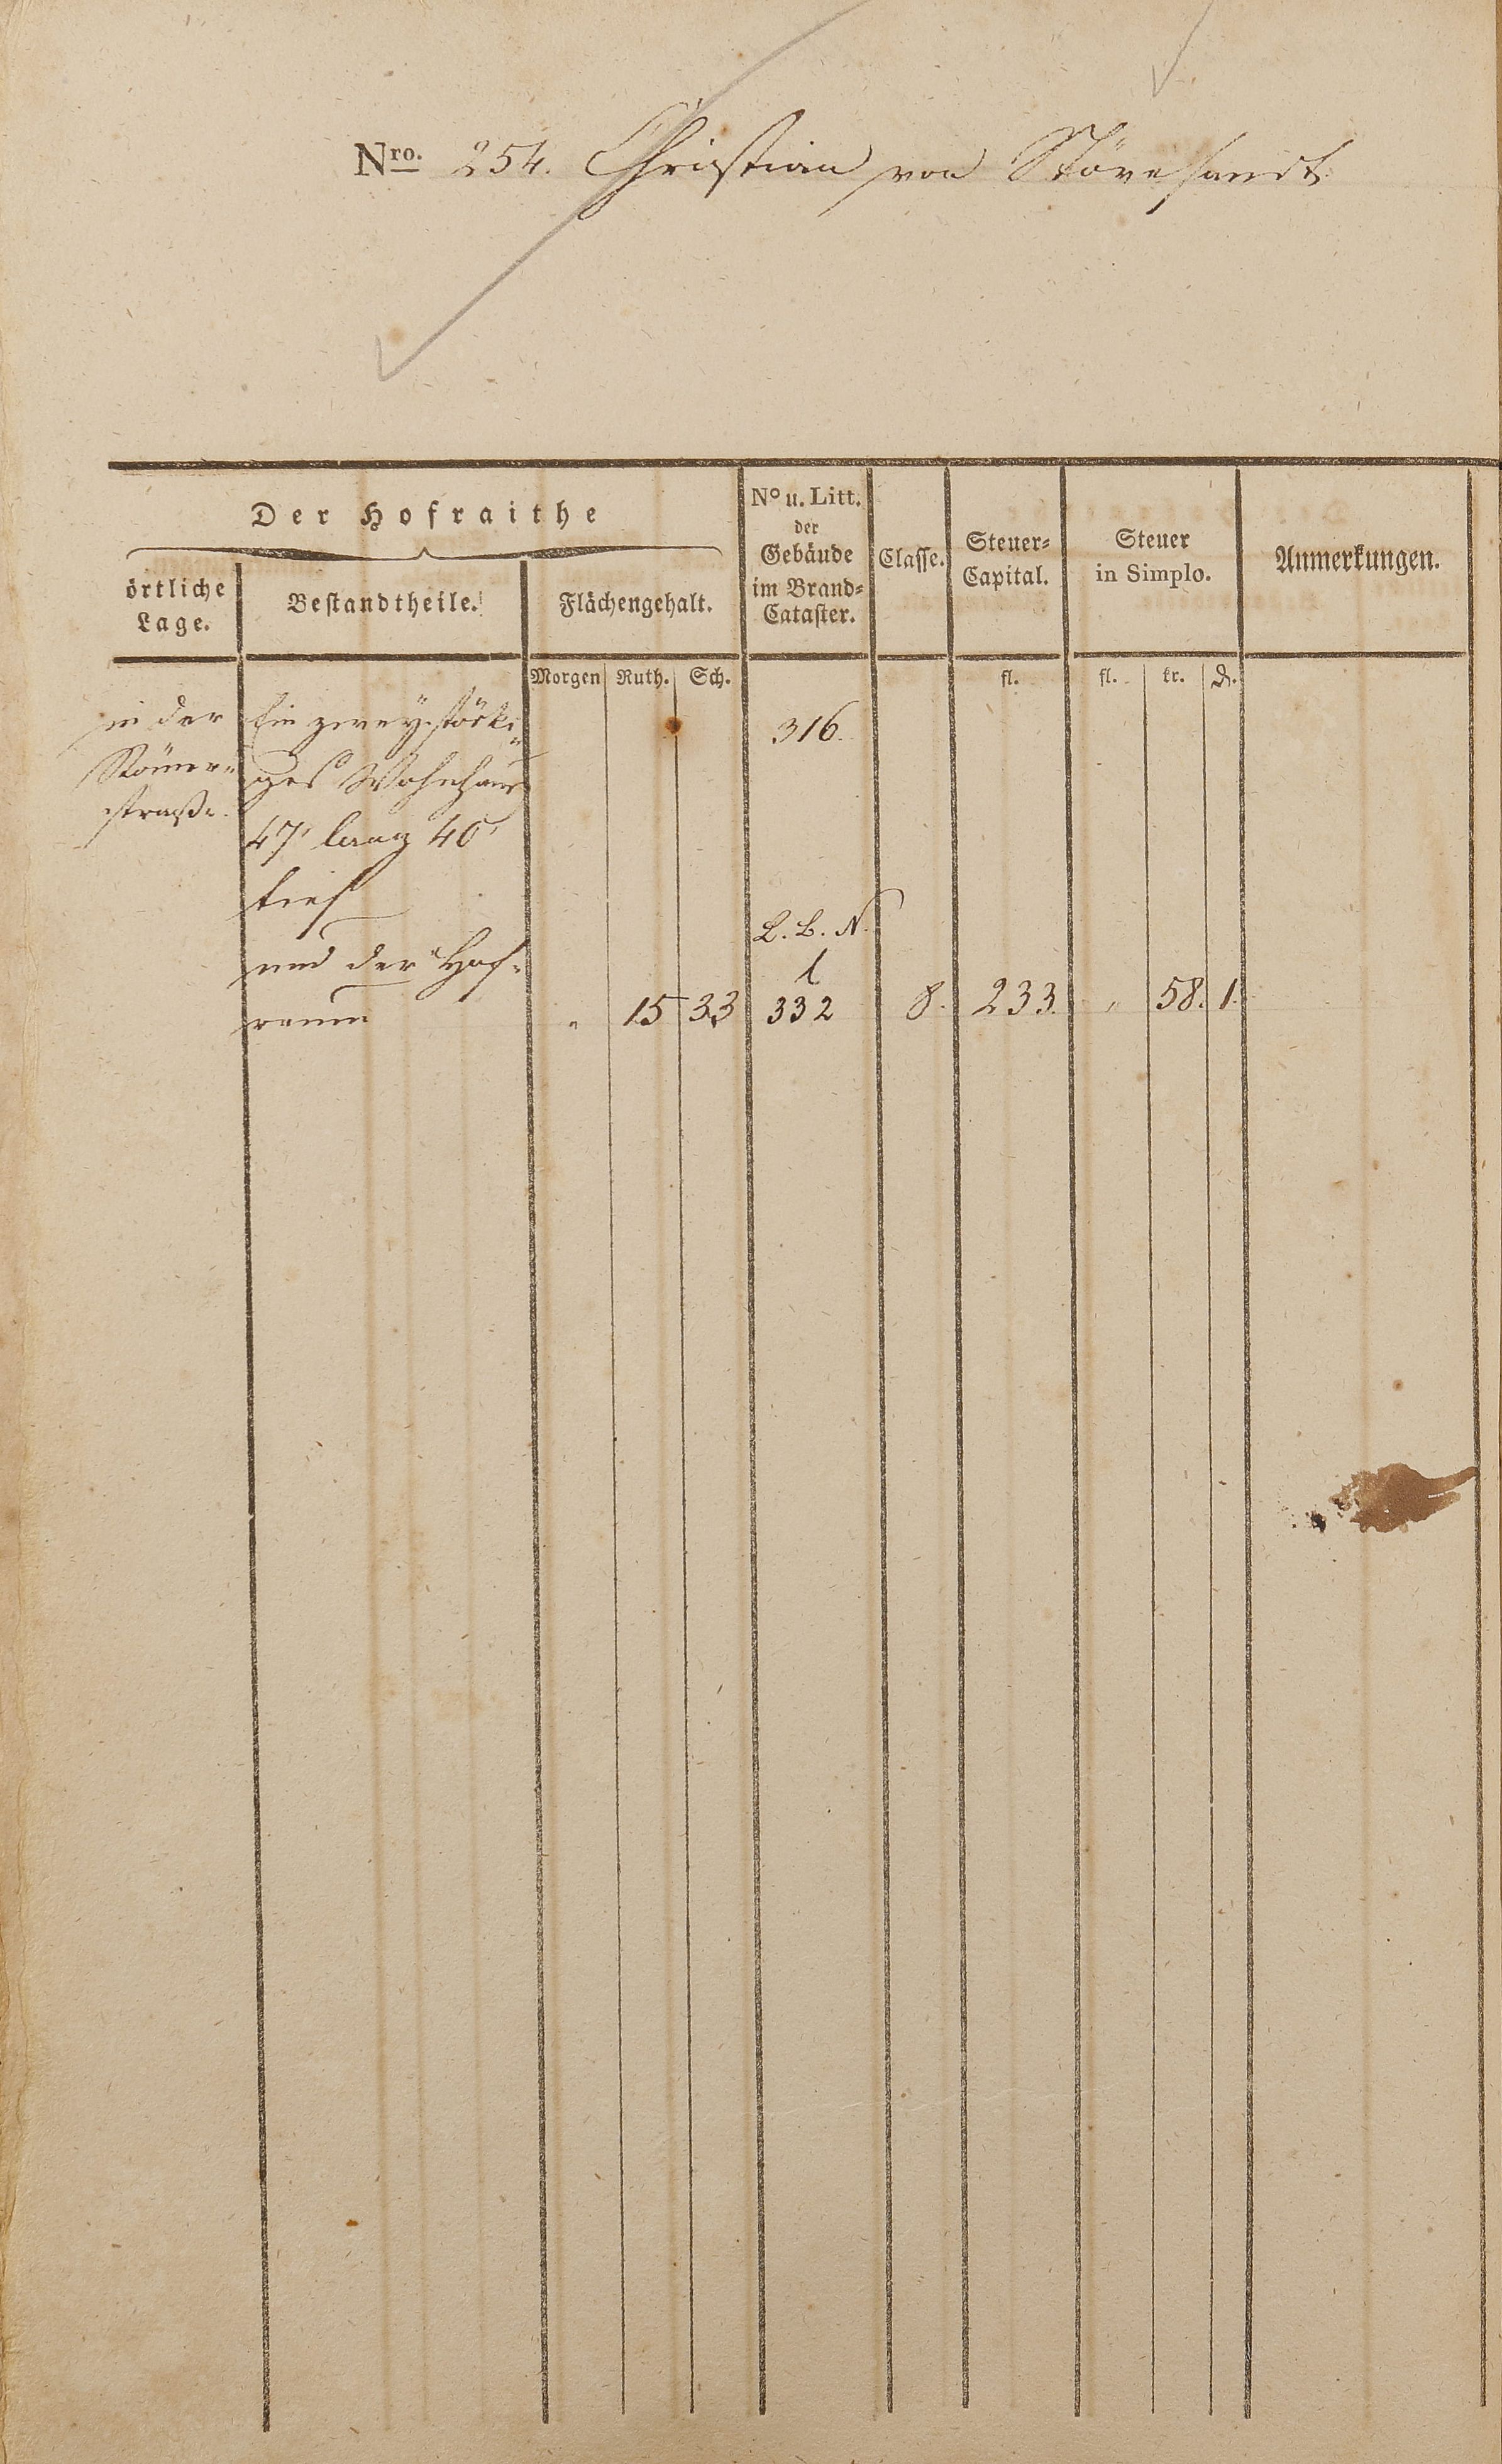 Nro. 254. Christian von Stövesandt
Der Hofraithe
örtliche
Lage.
Bestandtheile.
Flächengehalt.
No u. Litt.
der
Gebäude
im Brand-
Cataster.
Classe.
Steuer-
Capital.
Steuer
in Simplo.
Anmerkungen.
Morgen Ruth. Sch. fl. fl. kr. d.
in der Ein zwey-stöcki- 316.
Römer- ges Wohnhaus
straße. 47' lang 40'
tief
L. B. N.
und der Hof- 1
raum " 15 33 332 8. 233. " 58. 1.